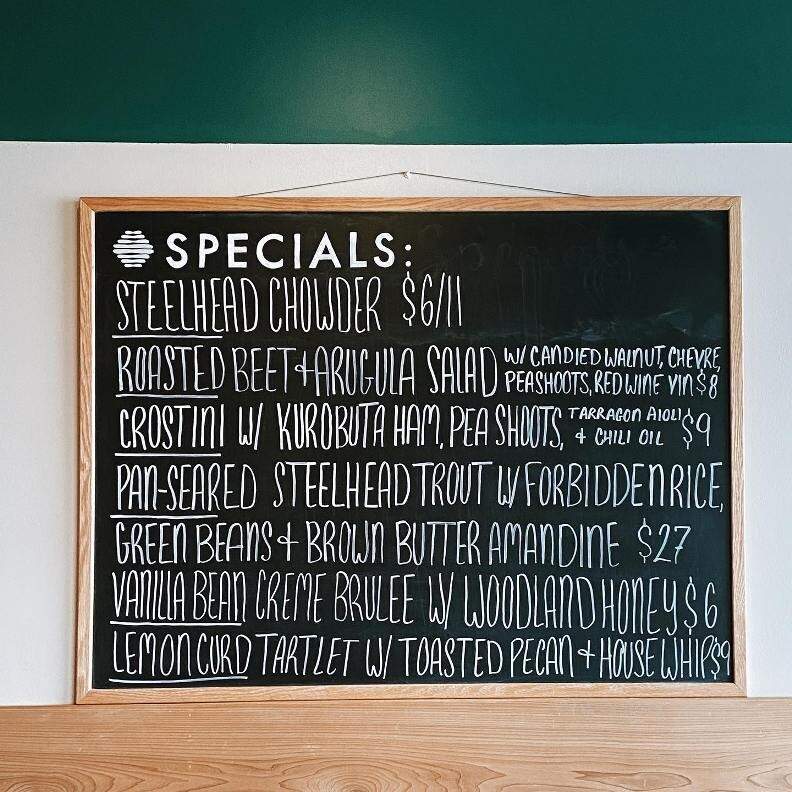 SPECIALS:
STEELHEAD CHOWDER $6/11
ROASTED BEET + ARUGULA SALAD W/ CANDIED WALNUT, CHEVRE,
PEASHOOTS, RED WINE VIN $8
CROSTINI W/ KUROBUTA HAM, PEA SHOOTS, TARRAGON AIOLI
+ CHILI OIL $9
PAN-SEARED STEELHEAD TROUT W/ FORBIDDEN RICE,
GREEN BEANS + BROWN BUTTER AMANDINE $27
VANILLA BEAN CREME BRULEE W/ WOODLAND HONEY $6
LEMON CURD TARTLET W/ TOASTED PECAN + HOUSE WHIP $9